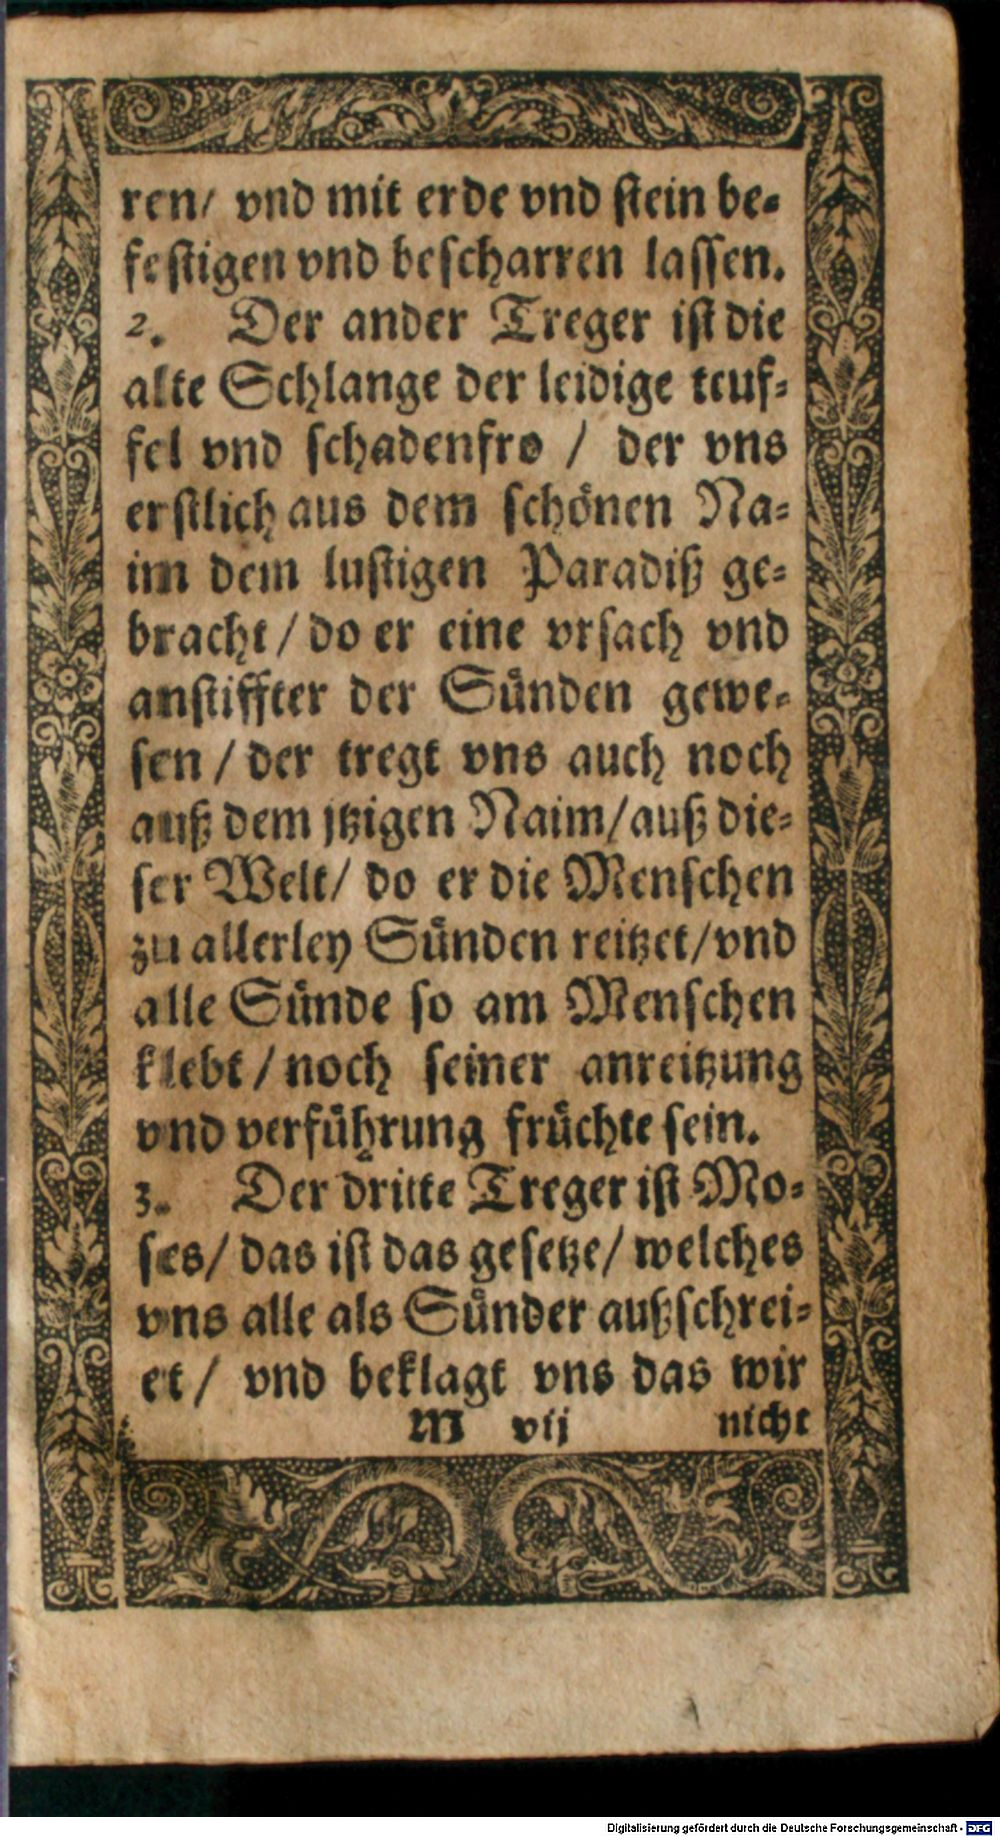 ren/ vnd mit erde vnd stein be⸗
festigen vnd bescharren lassen.
2. Der ander Treger ist die
alte Schlange der leidige teuf⸗
fel vnd schadenfro / der vns
erstlich aus dem schönen Na⸗
im dem lustigen Paradiß ge⸗
bracht / do er eine vrsach vnd
anstiffter der Sünden gewe⸗
sen / der tregt vns auch noch
auß dem jtzigen Naim/auß die⸗
ser Welt/ do er die Menschen
zu allerley Sünden reitzet/vnd
alle Sünde so am Menschen
klebt / noch seiner anreitzung
vnd verführung früchte sein.
3. Der dritte Treger ist Mo⸗
ses/ das ist das gesetze/ welches
vns alle als Sünder außschrei⸗
et / vnd beklagt vns das wir
M vij nicht
Digitalisierung gefördert durch die Deutsche Forschungsgemeinschaft - DFG